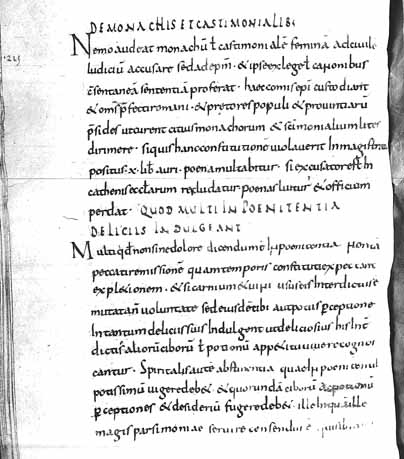 DE MONACHIS ET CASTIMONIALIB;
Nemo audeat monachū ł castimonialē feminā ad civile
iudiciū accusare sed ad epm̄ · & ipse ex lege ł canonibus
sententiā proferat · haec omīs epī custodiant
& oms̄ p̄fecti romani · & pretores populi & provintiarū
p̄sides ut curent citius monachorum & scīmonialium lites
dirimere · si quis hanc constitutionē violaverit in magistra
positus · x · lib̄ auri · poena multabitur · si excusator est in
cathenis recludatur poenas & officium
perdat · QUOD MULTI IN POENITENTIA
DELICIIS INDULGEANT
Multi qd̄ non sine dolore dicendum ē in poenitentia
peccati remissionē quam temporis constituti expectant
expl&ionem · & si carnium & vini usus eis interdic
mutatā voluntate sed eiusdē cibi aut poculi p̄ceptione
in tantum deliciis suis indulgent ut deliciosius his
dictis aliorū ciborū ł potionū app&itu vivere cognos
cantur · Spiritalis autē abstinentia quae in poenitentib;
potissimū vigere deb& · & quorundā ciborū ac potionū
p̄ceptiones & desideriū fugere deb& · ille
magis parsimoniae servire censendus ē